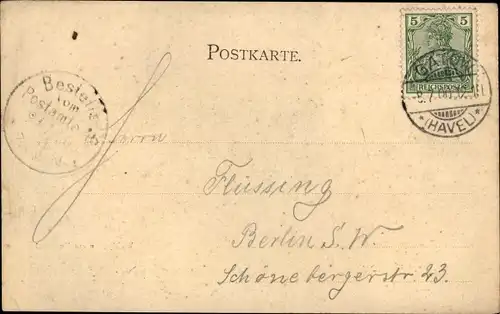 5 5
REICHSPOST
POSTKARTE.
GATOW
(HAVEL)
Bestellt
vom
Postamte
Herrn
Flüssing
Berlin S. W.
Schönebergerstr 23.